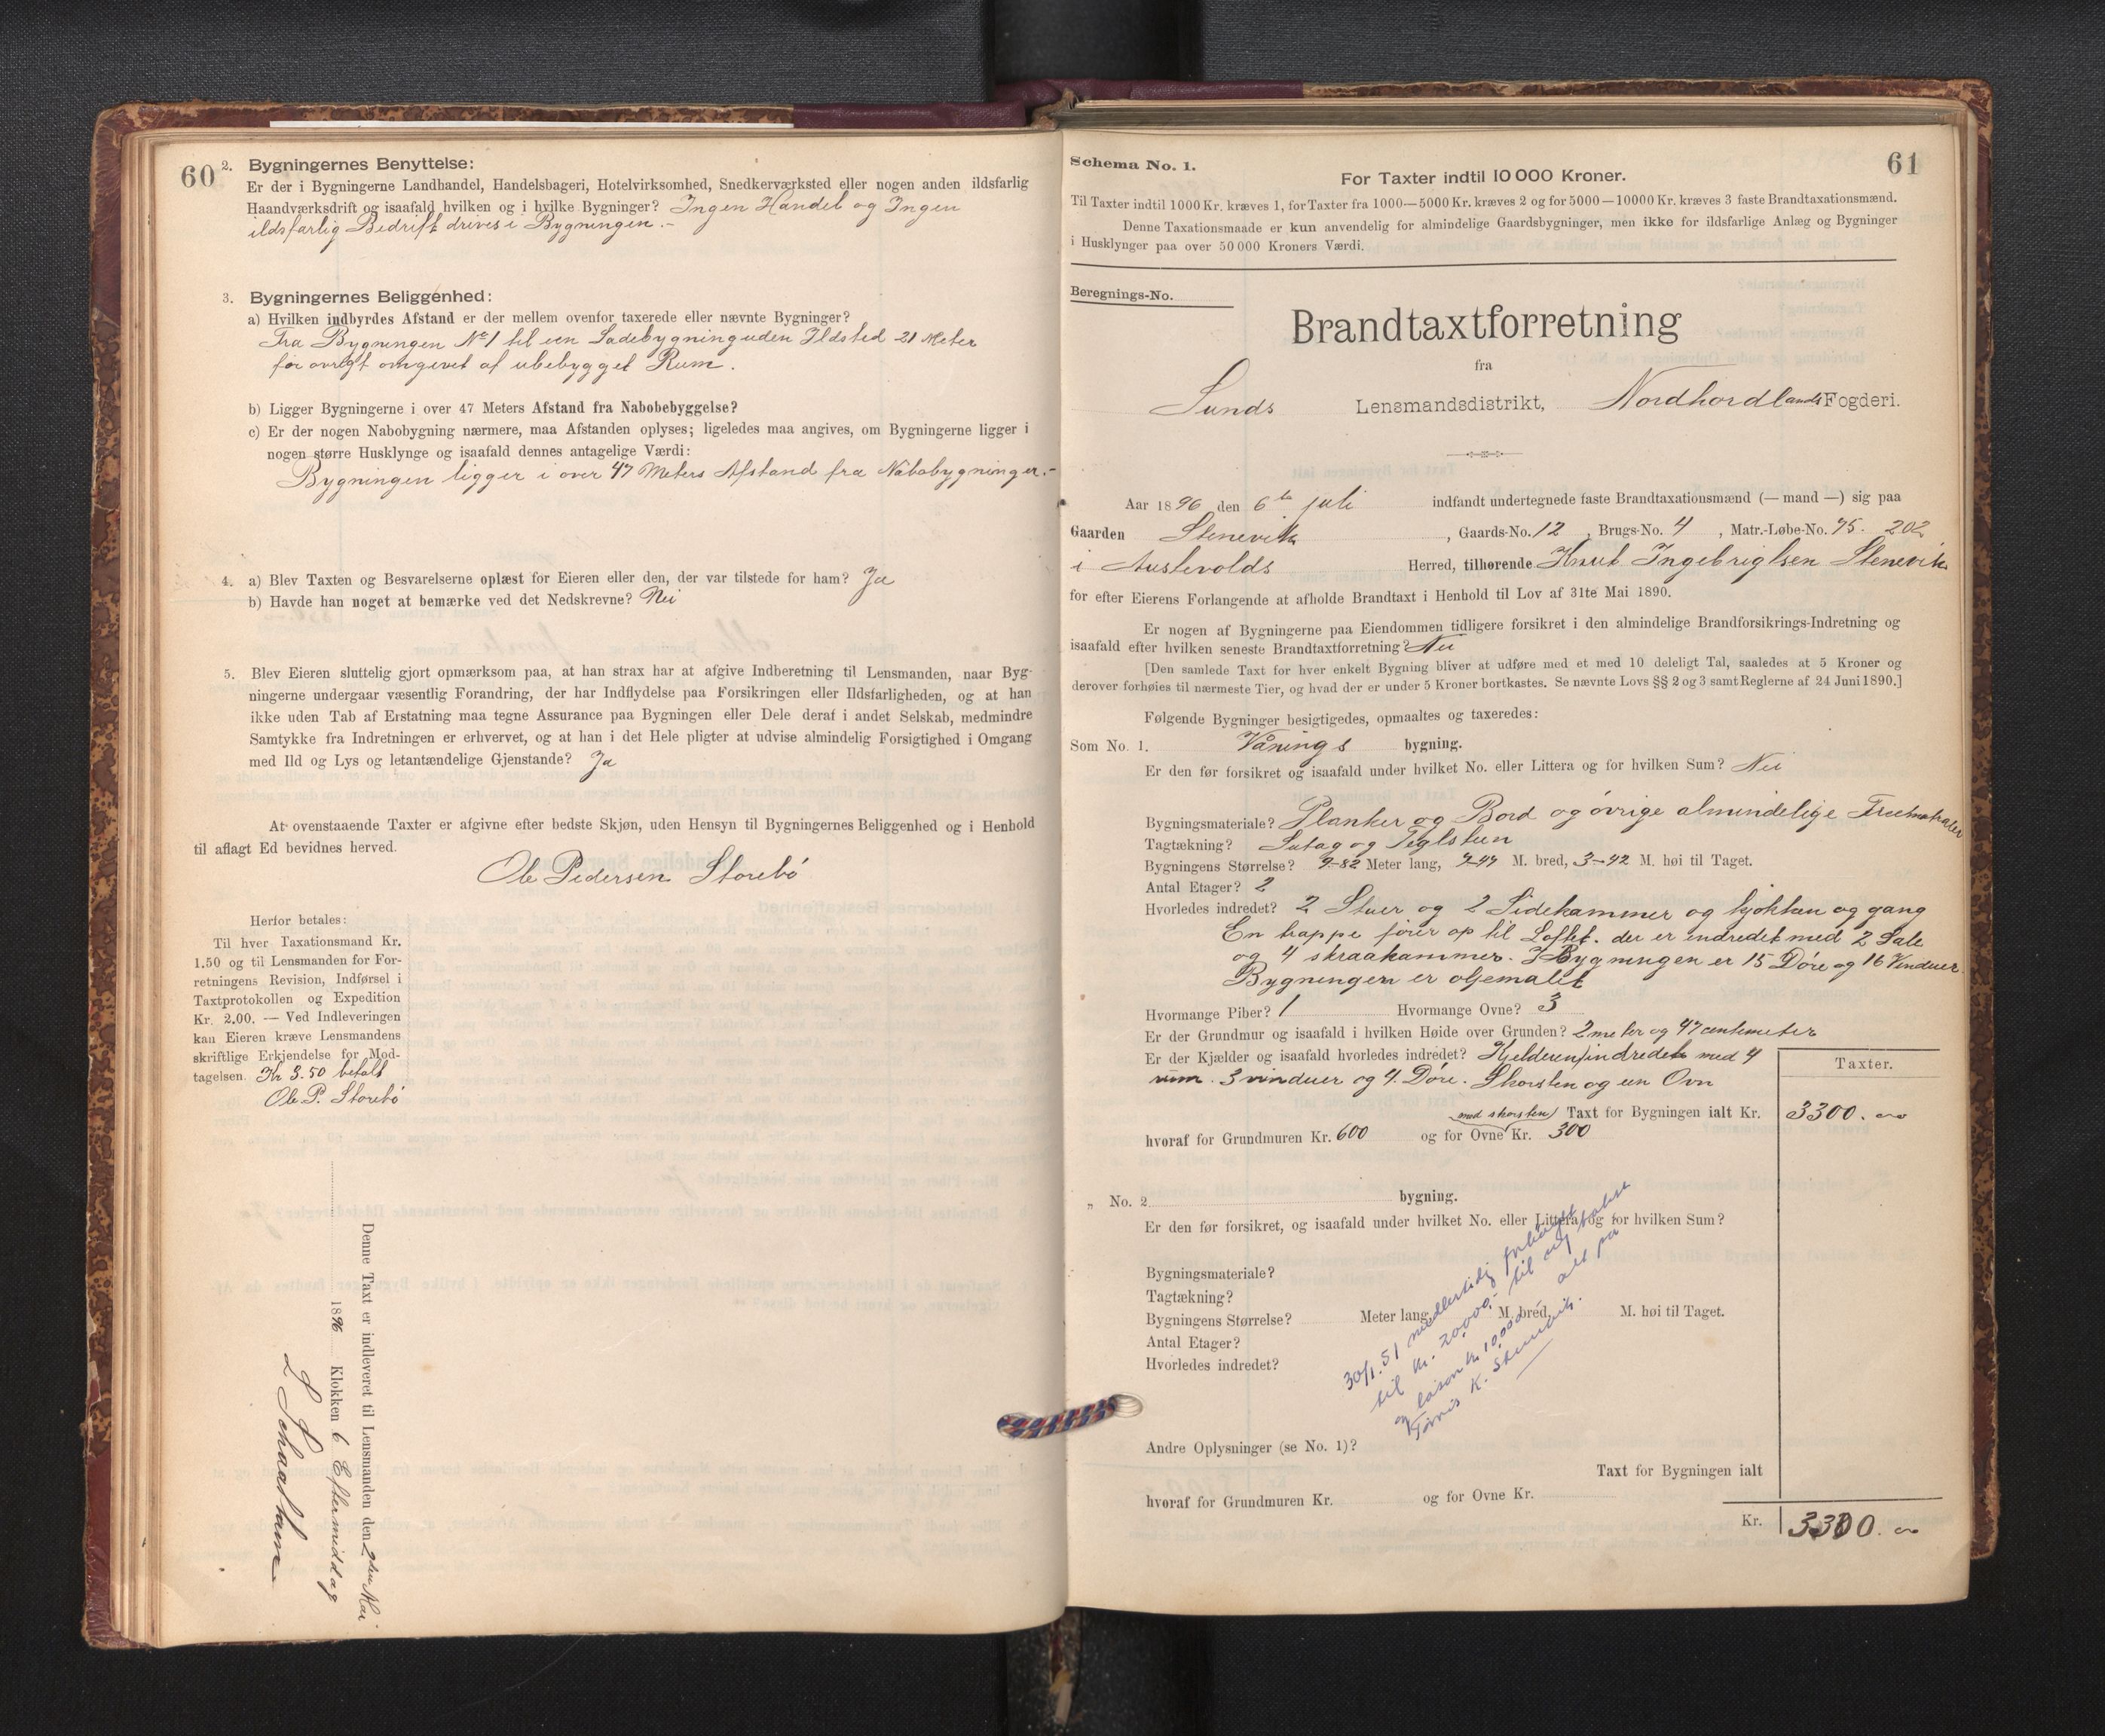 60
2. Bygningernes Benyttelse:
Er der i Bygningerne Landhandel, Handelsbageri, Hotelvirksomhed, Snedkerværksted eller nogen anden ildsfarlig
Haandværksdrift og isaafald hvilken og i hvilke Bygninger? Ingen Handel og Ingen
ildsfarlig Bedrift drives i Bygningen.-
3. Bygningernes Beliggenhed:
a) Hvilken indbyrdes Afstand er der mellem ovenfor taxerede eller nævnte Bygninger?
Fra Bygningen No 1 til een Ladebygning uden Ildsted 21 Meter
for øvrigt omgivet af ubebygget Rum.
b) Ligger Bygningerne i over 47 Meters Afstand fra Nabobebyggelse?
c) Er der nogen Nabobygning nærmere, maa Afstanden oplyses; ligeledes maa angives, om Bygningerne ligger i
nogen større Husklynge og isaafald dennes antagelige Værdi:
Bygningen ligger i over 47 Meters Afstand fra Nabobygninger.-
4. a) Blev Taxten og Besvarelserne oplæst for Eieren eller den, der var tilstede for ham? Ja
b) Havde han noget at bemærke ved det Nedskrevne? Nei
5. Blev Eieren sluttelig gjort opmærksom paa, at han strax har at afgive Indberetning til Lensmanden, naar Byg-
ningerne undergaar væsentlig Forandring, der har Indflydelse paa Forsikringen eller Ildsfarligheden, og at han
ikke uden Tab af Erstatning maa tegne Assurance paa Bygningen eller Dele deraf i andet Selskab, medmindre
Samtykke fra Indretningen er erhvervet, og at han i det Hele pligter at udvise almindelig Forsigtighed i Omgang
med Ild og Lys og letantændelige Gjenstande? Ja
At ovenstaaende Taxter er afgivne efter bedste Skjøn, uden Hensyn til Bygningernes Beliggenhed og i Henhold
til aflagt Ed bevidnes herved.
Ole Pedersen Storebö
Herfor betales:
Til hver Taxationsmand Kr.
1.50 og til Lensmanden for For-
retningens Revision, Indførsel i
Taxtprotokollen og Expedition
Kr. 2.00. — Ved Indleveringen
kan Eieren kræve Lensmandens
skriftlige Erkjendelse for Mod-
tagelsen. Kr 3.50 betalt
Ole P. Storebö
Denne Taxt er indleveret til Lensmanden den
1896 Klokken 6 Eftermiddag
61
Schema No. 1.
For Taxter indtil 10 000 Kroner.
Til Taxter indtil 1000 Kr. kræves 1, for Taxter fra 1000—5000 Kr. kræves 2 og for 5000—10000 Kr. kræves 3 faste Brandtaxationsmænd.
Denne Taxationsmaade er kun anvendelig for almindelige Gaardsbygninger, men ikke for ildsfarlige Anlæg og Bygninger
i Husklynger paa over 50 000 Kroners Værdi.
Beregnings-No.
Brandtaxtforretning
fra
Sunds Lensmandsdistrikt, Nordhordlands Fogderi.
Aar 1896 den 6te juli indfandt undertegnede faste Brandtaxationsmænd (— mand —) sig paa
Gaarden Stenevik, Gaards-No. 12, Brugs-No. 4, Matr.-Løbe-No. 75. 202
i Austevolds Herred, tilhørende Knut Ingebrigtsen Stenevik
for efter Eierens Forlangende at afholde Brandtaxt i Henhold til Lov af 31te Mai 1890.
Er nogen af Bygningerne paa Eiendommen tidligere forsikret i den almindelige Brandforsikrings-Indretning og
isaafald efter hvilken seneste Brandtaxtforretning? Nei
[Den samlede Taxt for hver enkelt Bygning bliver at udføre med et med 10 deleligt Tal, saaledes at 5 Kroner og
derover forhøies til nærmeste Tier, og hvad der er under 5 Kroner bortkastes. Se nævnte Lovs §§ 2 og 3 samt Reglerne af 24 Juni 1890.]
Følgende Bygninger besigtigedes, opmaaltes og taxeredes:
Som No. 1. Vånings bygning.
Er den før forsikret og isaafald under hvilket No. eller Littera og for hvilken Sum? Nei
Bygningsmateriale? Planker og Bord og övrige almindelige
Tagtækning? Sutag og Teglsteen
Bygningens Størrelse? 9-82 Meter lang, M. bred, 3-42 M. høi til Taget.
Antal Etager? 2
Hvorledes indredet? 2 Stuer og 2 Sidekammer og kjøkken og gang
En trappe fører op til Loftet. der er indredet med 2 Sale
og 4 skraakammer. I Bygningen er 15 Døre og 16 Vinduer
Bygningen er oljemalet
Hvormange Piber? 1 Hvormange Ovne? 3
Er der Grundmur og isaafald i hvilken Høide over Grunden? 2 meter og 47 centemeter
Er der Kjælder og isaafald hvorledes indredet? Kjelderen indredet med 4
rum. 3 vinduer og 4. Døre. Skorsten og een Ovn
Taxter.
med skorsten Taxt for Bygningen ialt Kr. 3300.
hvoraf for Grundmuren Kr. 600 og for Ovne Kr. 300
„ No. 2 bygning.
Er den før forsikret, og isaafald under hvilket No. eller Littera og for hvilken Sum?
Bygningsmateriale?
Tagtækning?
Bygningens Størrelse? Meter lang, M. bred, M. høi til Taget.
Antal Etager?
Hvorledes indredet?
30/1. 51 medlertidig forhøiet
til kr. 20000,- til
kr. 10.000
K. Stenevik.
Andre Oplysninger (se No. 1)?
Taxt for Bygningen ialt
hvoraf for Grundmuren Kr. og for Ovne Kr.
Kr. 3300.